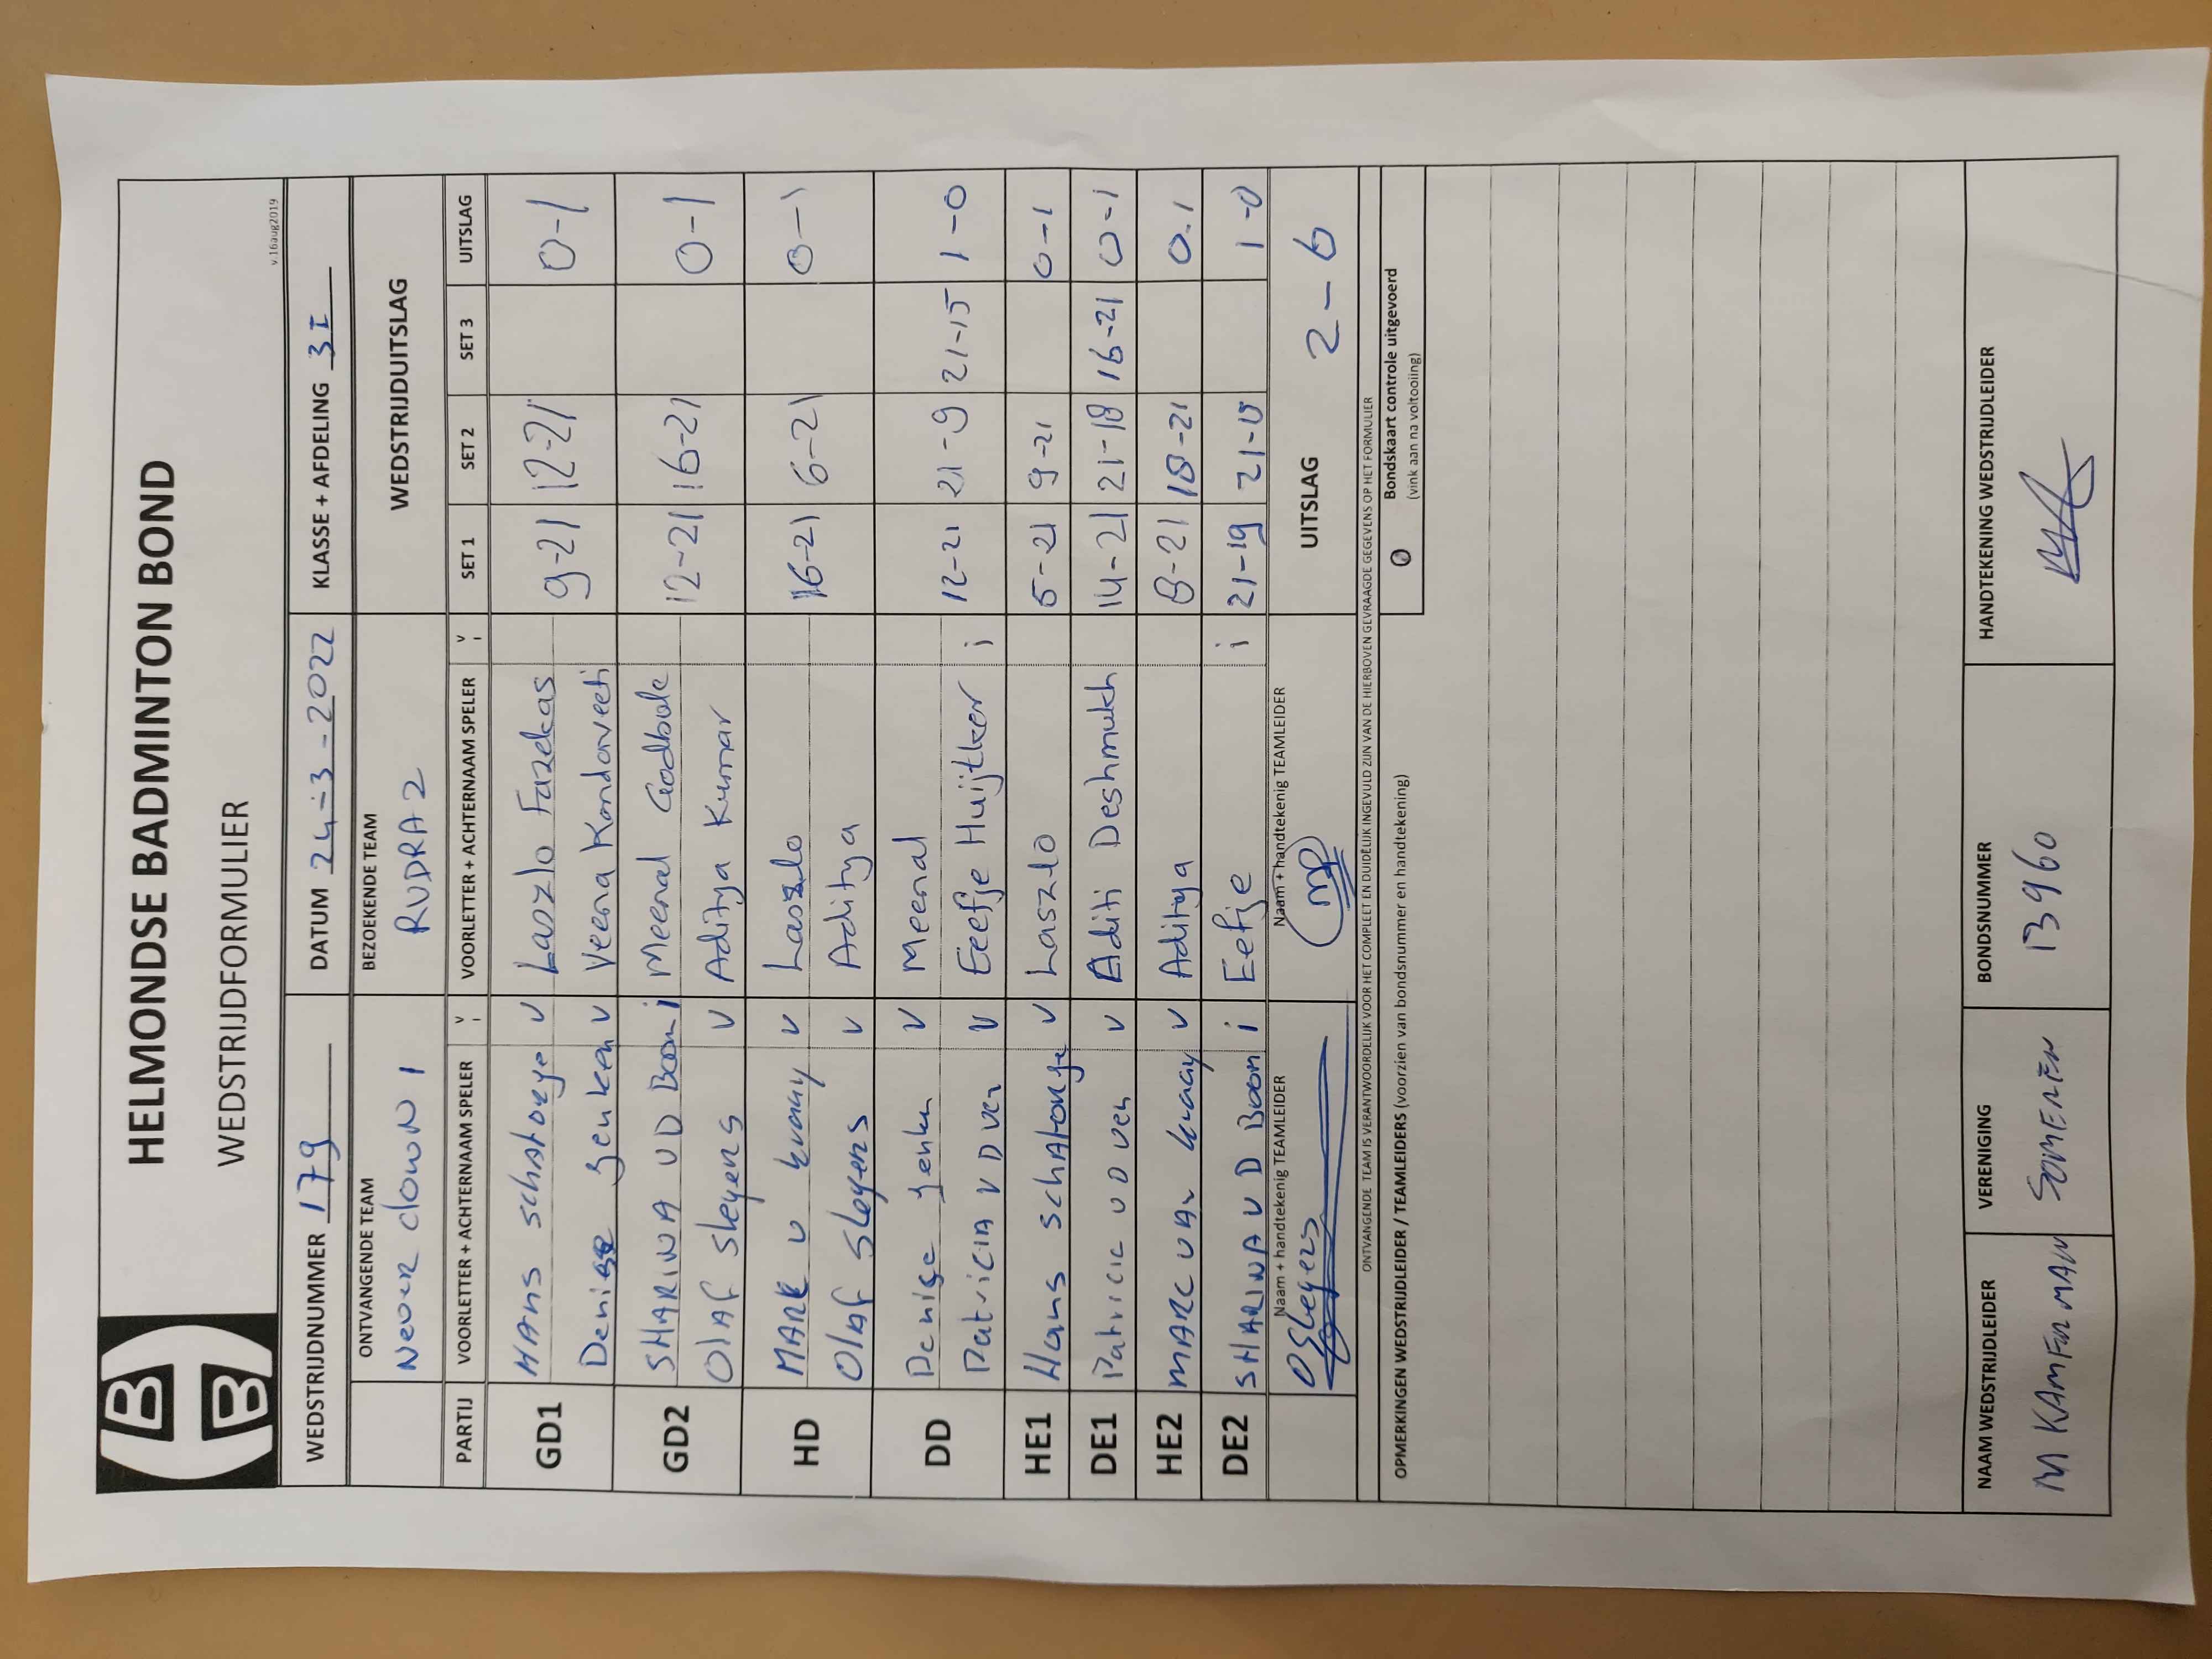 HB
B
HELMONDSE BADMINTON BOND
WEDSTRIJDFORMULIER
v.16aug2019
WEDSTRIJDNUMMER 179 DATUM 24-3-2022 KLASSE + AFDELING 3I
ONTVANGENDE TEAM BEZOEKENDE TEAM WEDSTRIJDUITSLAG
Never clown 1 RUDRA 2
PARTIJ VOORLETTER + ACHTERNAAM SPELER V I VOORLETTER + ACHTERNAAM SPELER V I SET 1 SET 2 SET 3 UITSLAG
GD1 HAns schatorje v Laszlo Fazekas 9-21 12-21 0-1
Denise Jenken v Veena Kondorveeti
GD2 SHARINA VD Boom i Meenal Godbole 12-21 16-21 0-1
Olaf Slegers v Aditya Kumar
HD MARK v kraay v Laszlo 16-21 6-21 0-1
Olaf Slegers v Aditya
DD Denise Jenken v Meenal 12-21 21-9 21-15 1-0
Patricia v D Ven v Eeefje Huijtker i
HE1 Hans schatorje v Laszlo 5-21 9-21 0-1
DE1 Patricia v D ven v Aditi Deshmukh 14-21 21-18 16-21 0-1
HE2 MARC van kraay v Aditya 8-21 18-21 0-1
DE2 SHARINA v D Boom i Eefje i 21-19 21-18 1-0
Naam + handtekenig TEAMLEIDER Naam + handtekenig TEAMLEIDER UITSLAG 2-6
O Slegers
ONTVANGENDE TEAM IS VERANTWOORDELIJK VOOR HET COMPLEET EN DUIDELIJK INGEVULD ZIJN VAN DE HIERBOVEN GEVRAAGDE GEGEVENS OP HET FORMULIER
OPMERKINGEN WEDSTRIJDLEIDER / TEAMLEIDERS (voorzien van bondsnummer en handtekening)
Bondskaart controle uitgevoerd
(vink aan na voltooiing)
NAAM WEDSTRIJDLEIDER VERENIGING BONDSNUMMER HANDTEKENING WEDSTRIJDLEIDER
M KAMFERMAN SOMEREN 13960